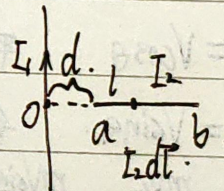 I₁ d. l I₂
O a b
I₂dl⃗.